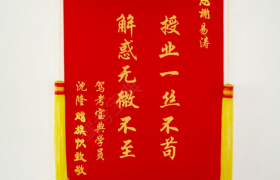 感谢易涛
授业一丝不苟
解惑无微不至
驾考宝典学员
沈隆赠旗状致敬